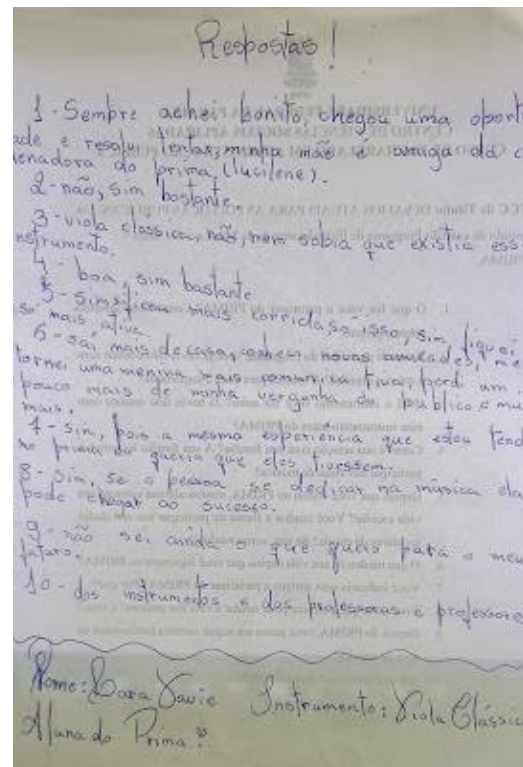 Respostas!
1 - Sempre achei bonito, chegou uma oport
ade e resolvi tentar, minha mãe é amiga da c
denadora do prima, (lucilene).
2 - não, sim bastante.
3 - viola classica, não, nem sabia que existia ess
nstrumento.
4 - boa, sim bastante
5 - Sim, ficou mais corrida, só isso, sim, fiquei
so mais ativa.
6 - sai mais de casa, conheci novas amizades, me
tornei uma menina mais comunicativa, perdi um
pouco mais de minha vergonha do publico e mui
mais.
7 - Sim, pois a mesma experiência que estou tend
no prima eu queria que eles tivessem.
8 - Sim, se a pessoa se dedicar na música ela
pode chegar ao sucesso.
9 - não sei ainda o que quero para o meu
futuro.
10 - dos instrumentos e das professoras e professore
Nome: Instrumento: Viola Clássic
Aluna do Prima